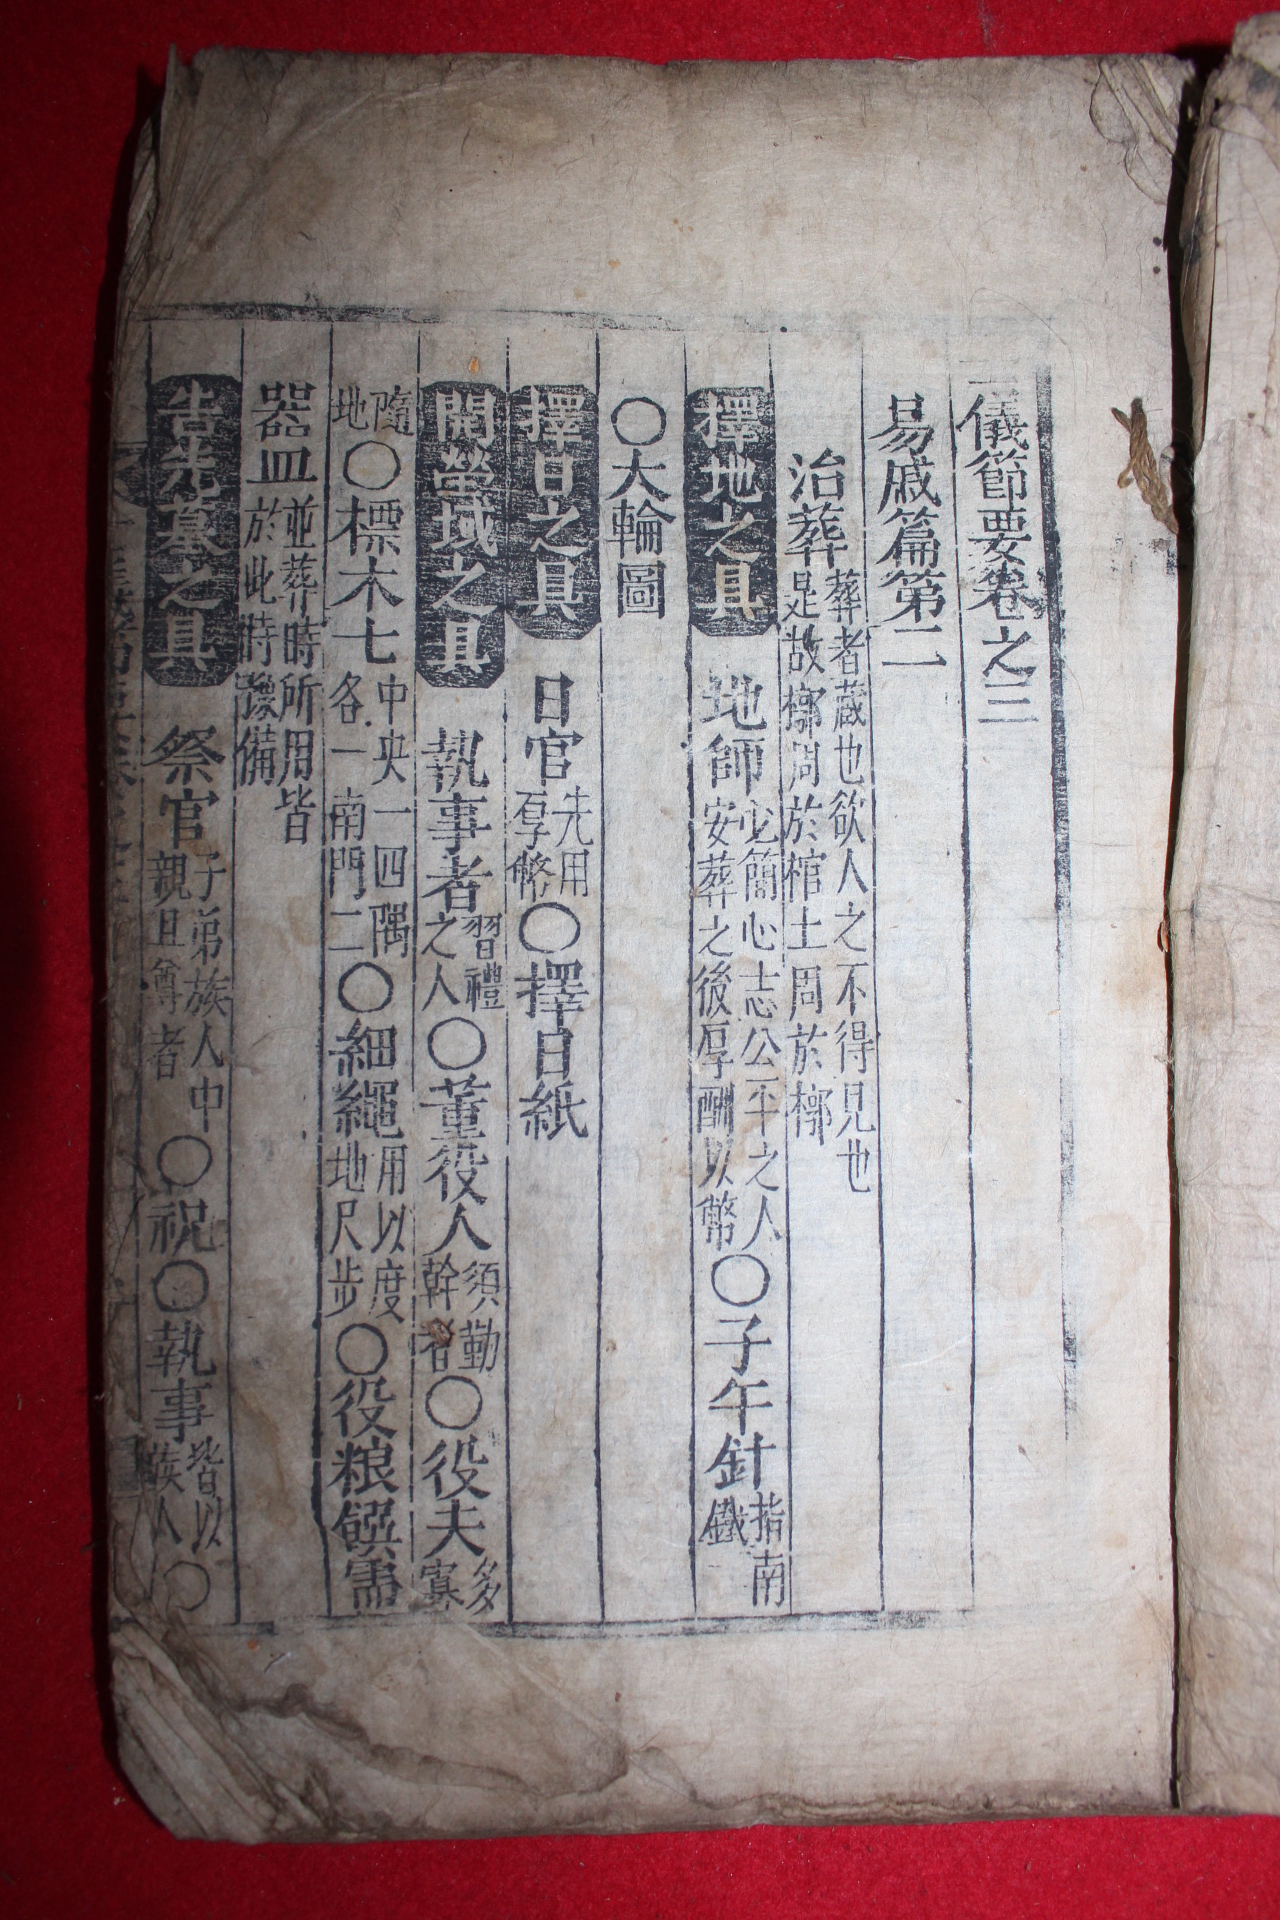 二儀節要卷之三
易戚篇第二
治葬 葬者藏也欲人之不得見也
是故槨周於棺土周於槨
擇地之具 地師 必簡心志公平之人
安葬之後厚酬以幣 〇子午針 指南
鐵
〇大輪圖
擇日之具 日官 先用
厚幣 〇擇日紙
開塋域之具 執事者 習禮
之人 〇董役人 須勤
幹者 〇役夫 多
寡
隨
地 〇標木七 中央一四隅
各一南門二 〇細繩 用以度
地尺步 〇役粮饌需
器皿 並葬時所用皆
於此時豫備
告先墓之具 祭官 子弟族人中
親且尊者 〇祝〇執事 皆以
族人 〇